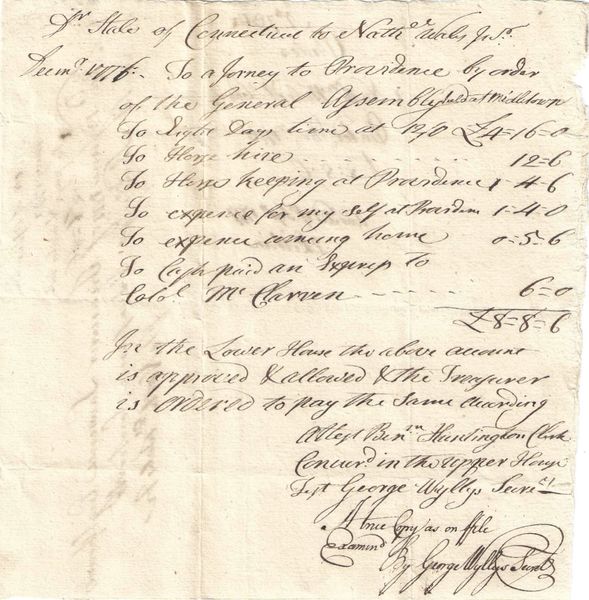 Dr State of Connecticut to Nathel Wales Jnr.
Decmr 1776 - To a Jorney to Providence by order
of the General Assembly held at Midletown
To Eight Days time at 12/0 £4=16=0
To Horse hire 12=6
To Horse keeping at Providence 1-4-6
To expence for my self at Providence 1-4-0
To expence coming home 0=5=6
To Cash paid an Express to
Colol. Mc Clarren 6=0
£8=8=6
In the Lower House the above account
is approved & allowed & the Treasurer
is ordered to pay the Same according
Attest Benjm Huntington Clerk
Concurd in the upper House
Test George Wyllys Secrety
A true Copy as on file
Examind
By George Wyllys Secrety